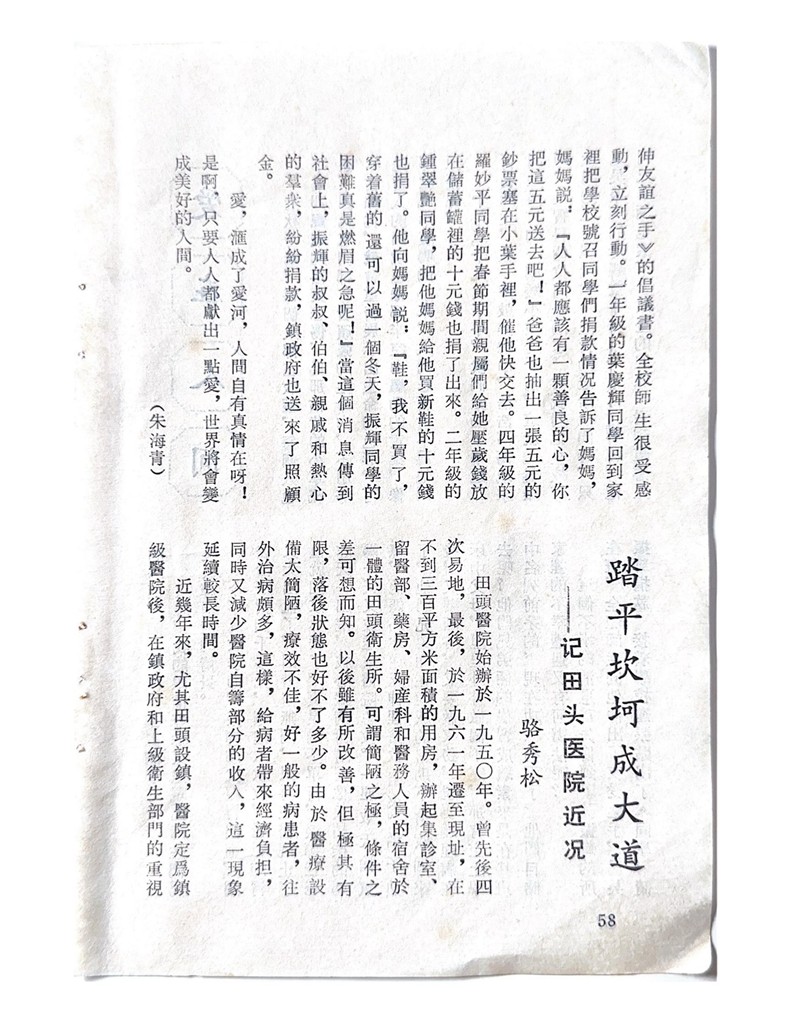 伸友誼之手》的倡議書。全校師生很受感
動，立刻行動。一年級的葉慶輝同學回到家
裡把學校號召同學們捐款情況告訴了媽媽，
媽媽説：『人人都應該有一顆善良的心，你
把這五元送去吧！』爸爸也抽出一張五元的
鈔票塞在小葉手裡，催他快交去。四年級的
羅妙平同學把春節期間親屬們給她壓歲錢放
在儲蓄罐裡的十元錢也捐了出來。二年級的
鍾翠艷同學，把他媽媽給他買新鞋的十元錢
也捐了。他向媽媽説：『鞋，我不買了，
穿着舊的還可以過一個冬天，振輝同學的
困難真是燃眉之急呢！』當這個消息傳到
社會上，振輝的叔叔、伯伯、親戚和熱心
的羣衆，紛紛捐款，鎮政府也送來了照顧
金。
愛，滙成了愛河，人間自有真情在呀！
是啊，只要人人都獻出一點愛，世界將會變
成美好的人間。
（朱海青）
踏平坎坷成大道
——记田头医院近况
骆秀松
田頭醫院始辦於一九五〇年。曾先後四
次易地，最後，於一九六一年遷至現址，在
不到三百平方米面積的用房，辦起集診室、
留醫部、藥房、婦産科和醫務人員的宿舍於
一體的田頭衛生所。可謂簡陋之極，條件之
差可想而知。以後雖有所改善，但極其有
限，落後狀態也好不了多少。由於醫療設
備太簡陋，療效不佳，好一般的病患者，往
外治病頗多，這樣，給病者帶來經濟負担，
同時又減少醫院自籌部分的收入，這一現象
延續較長時間。
近幾年來，尤其田頭設鎮，醫院定爲鎮
級醫院後，在鎮政府和上級衛生部門的重視
58